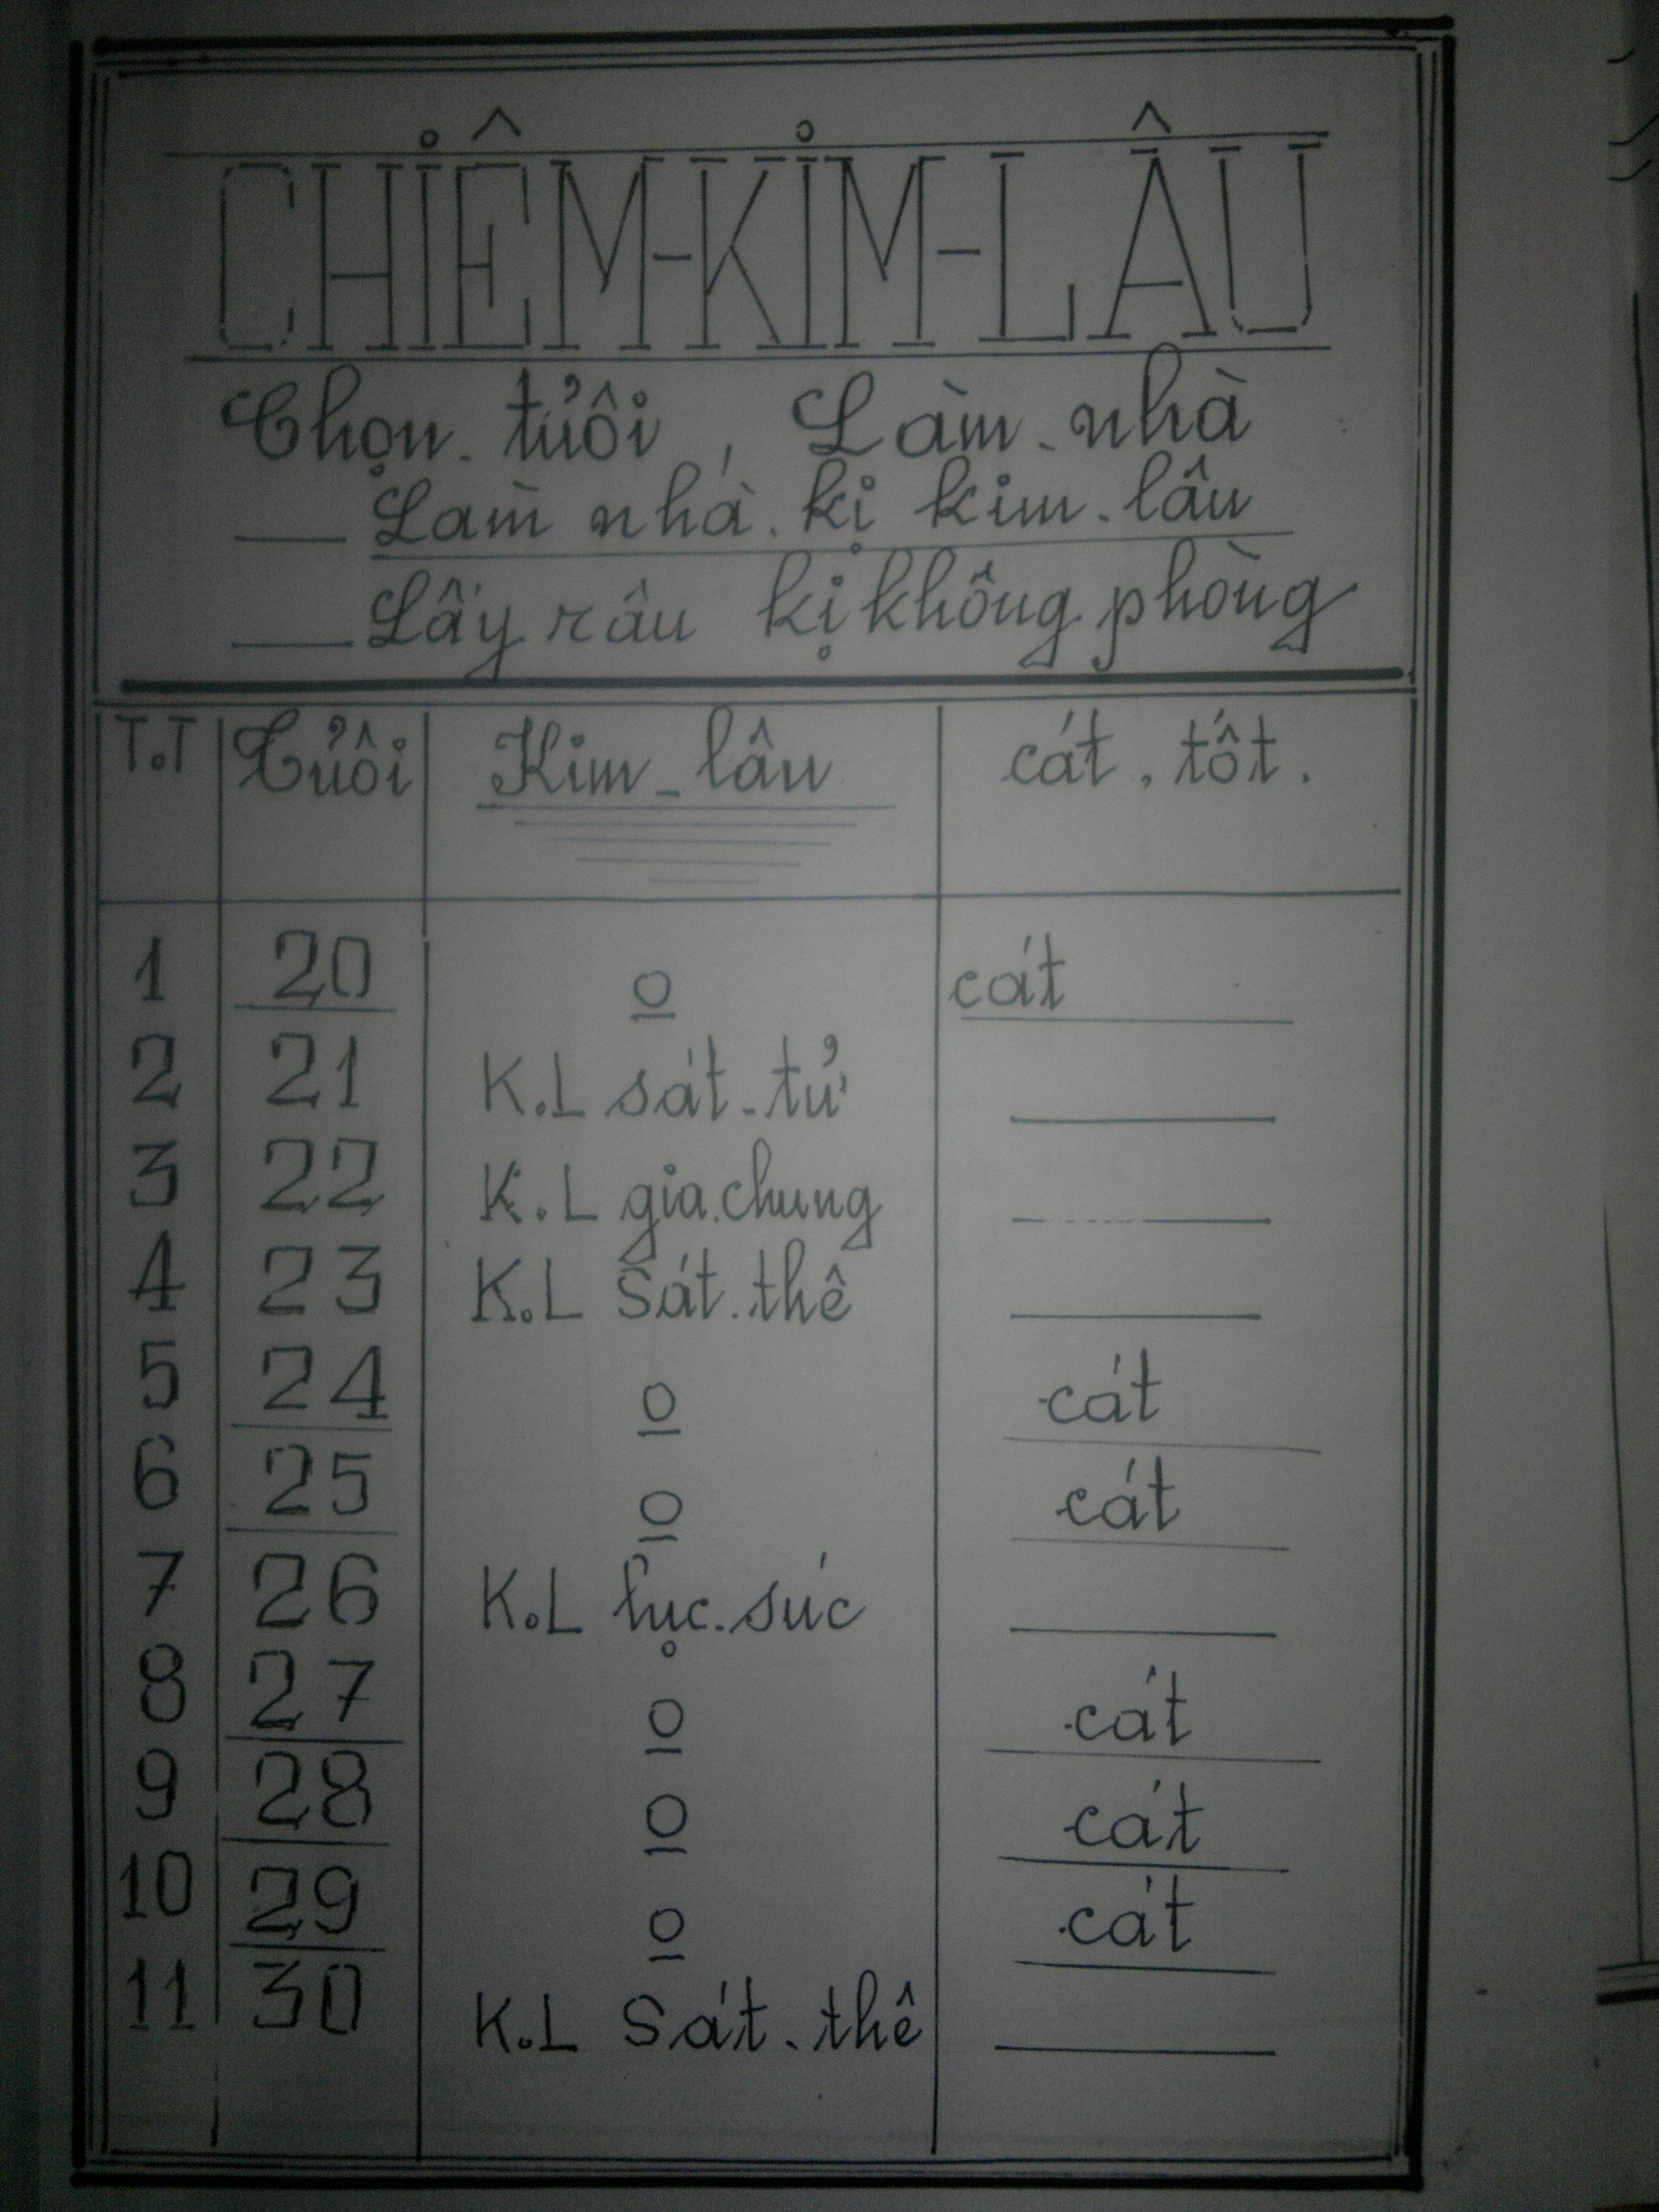 CHIÊM-KIM-LÂU
Chọn. tuổi, Làm. nhà
Làm nhà. kị kim. lâu
Lấy râu kị không phòng
T.T Tuổi Kim_lâu cát. tốt.
1 20 0 cát
2 21 K.L sát-tử
3 22 K.L gia.chung
4 23 K.L Sát.thê
5 24 0 cát
6 25 0 cát
7 26 K.L lục.súc
8 27 0 cát
9 28 0 cát
10 29 0 cát
11 30 K.L Sát.thê